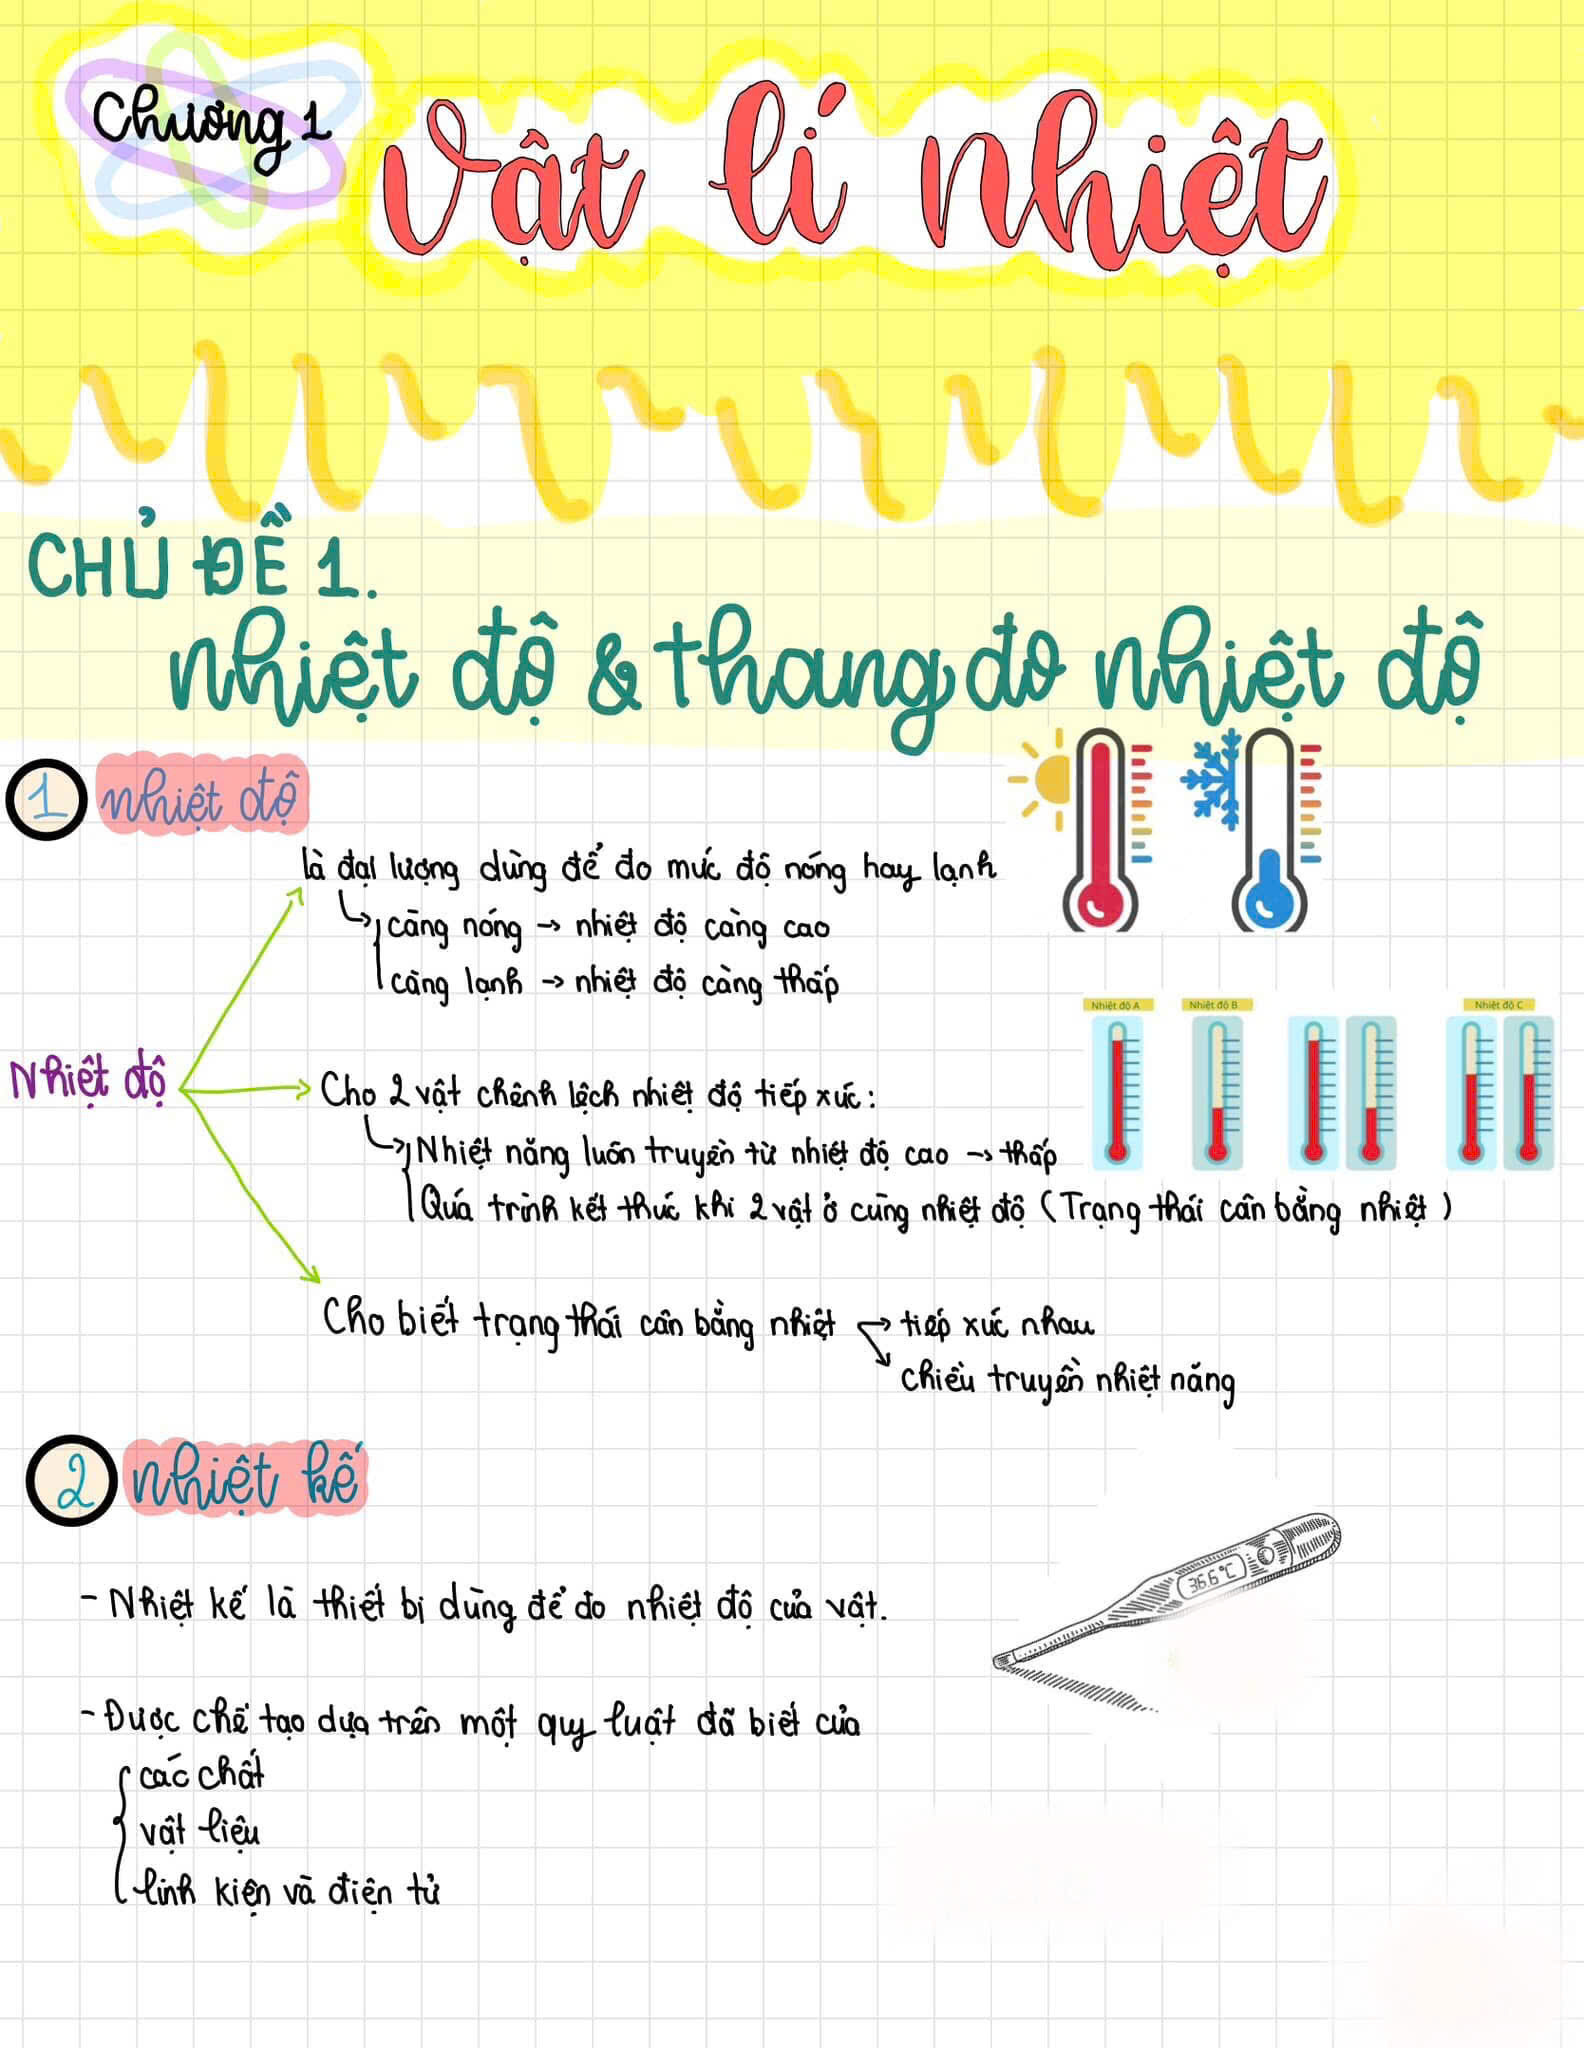 Chương 1
Vật lí nhiệt
CHỦ ĐỀ 1.
nhiệt độ & thang đo nhiệt độ
1 nhiệt độ
là đại lượng dùng để đo mức độ nóng hay lạnh
càng nóng → nhiệt độ càng cao
càng lạnh → nhiệt độ càng thấp
Nhiệt độ A
Nhiệt độ B
Nhiệt độ C
Nhiệt độ
Cho 2 vật chênh lệch nhiệt độ tiếp xúc:
Nhiệt năng luôn truyền từ nhiệt độ cao → thấp
Quá trình kết thúc khi 2 vật ở cùng nhiệt độ (Trạng thái cân bằng nhiệt)
Cho biết trạng thái cân bằng nhiệt → tiếp xúc nhau
chiều truyền nhiệt năng
2 nhiệt kế
36.6°C
- Nhiệt kế là thiết bị dùng để đo nhiệt độ của vật.
- Được chế tạo dựa trên một quy luật đã biết của
các chất
vật liệu
linh kiện và điện tử